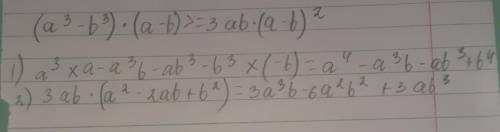 (a³-b³)·(a-b)>=3ab·(a-b)²
1) a³×a-a³b-ab³-b³×(-b)=a⁴-a³b-ab³+b⁴
2) 3ab·(a²-2ab+b²)=3a³b-6a²b²+3ab³